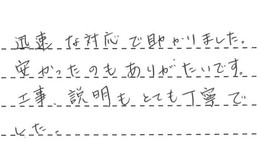 迅速な対応で助かりました。
安かったのもありがたいです。
工事、説明もとても丁寧で
した。